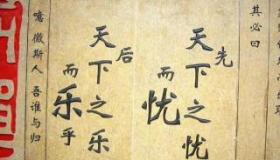 其必曰
先天下之忧
而忧
后天下之乐
而乐乎
噫 微斯人 吾谁与归